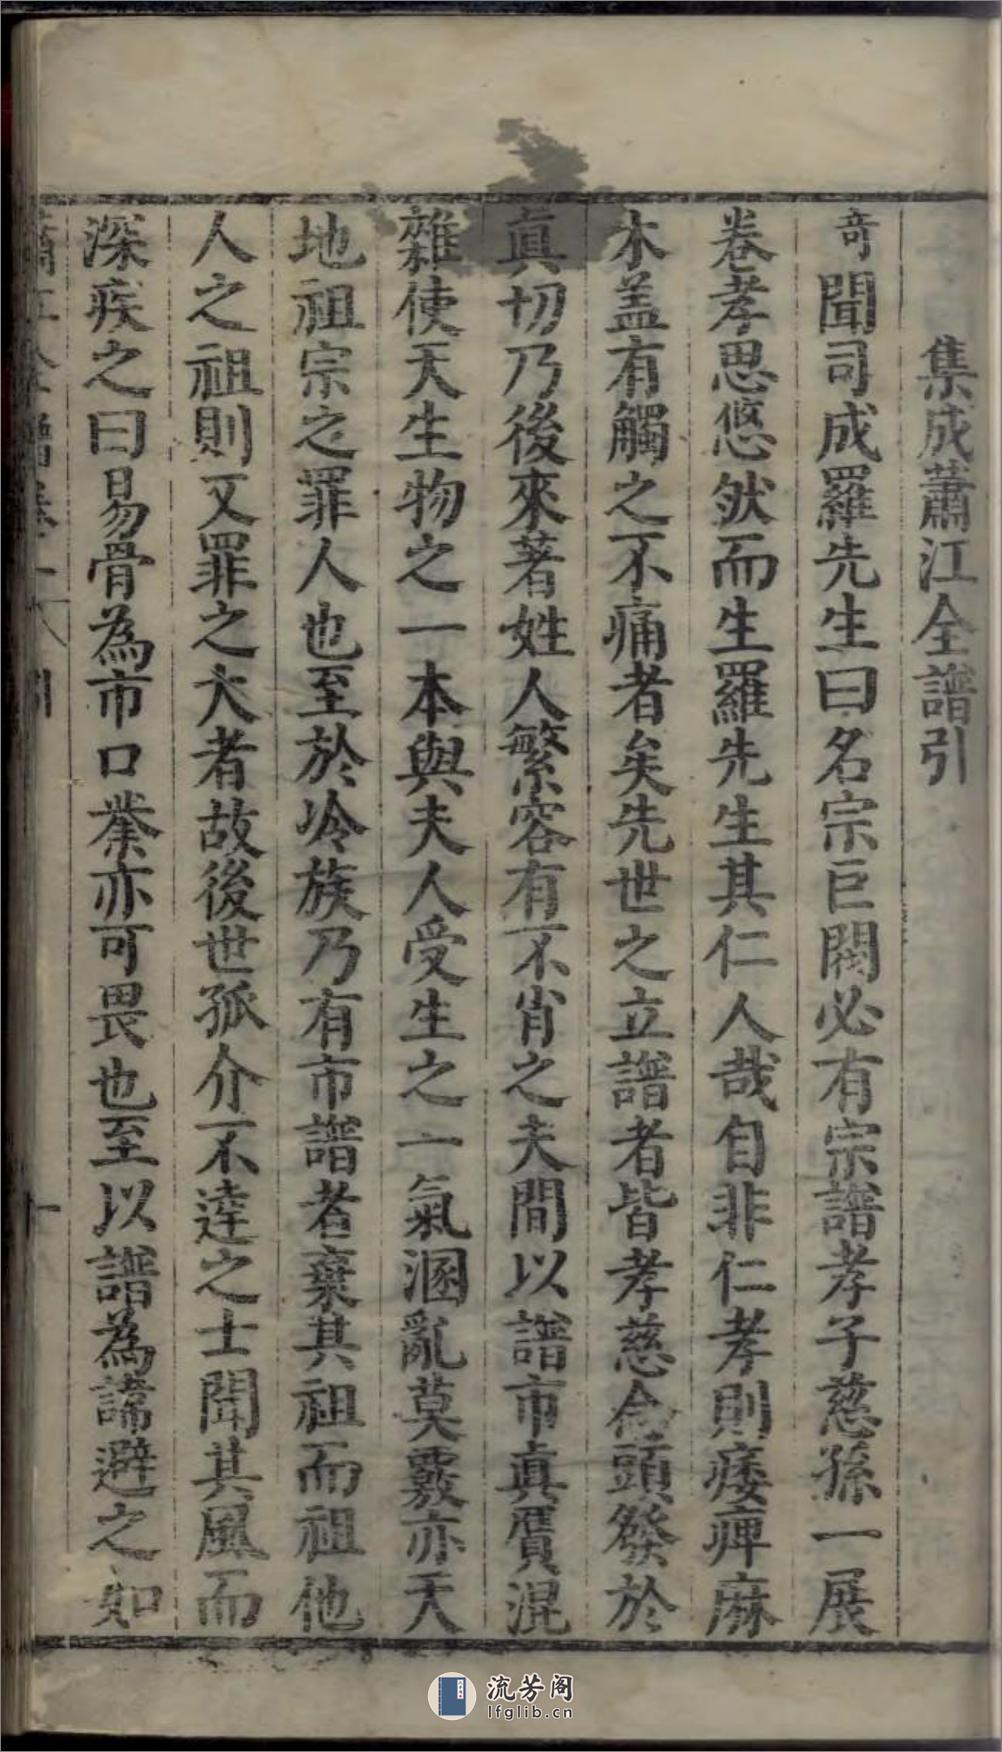 集成蕭江全譜引
奇聞司成羅先生曰名宗巨閥必有宗譜孝子慈孫一展
卷孝思悠然而生羅先生其仁人哉自非仁孝則痿痺麻
木盖有觸之不痛者矣先世之立譜者皆孝慈念頭發於
眞切乃後來著姓人繁容有不肖之夫間以譜市眞贋混
雜使天生物之一本與夫人受生之一氣溷亂莫覈亦天
地祖宗之罪人也至於冷族乃有市譜者棄其祖而祖他
人之祖則又罪之大者故後世孤介不逹之士聞其風而
深疾之曰易骨為市口業亦可畏也至以譜為諱避之如
蕭江全譜卷一 引 一
流芳阁
lfglib.cn